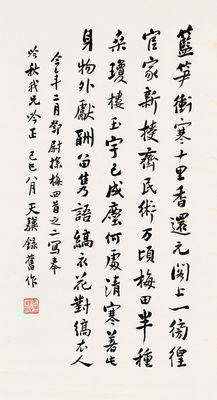 籃笋衝寒十里香還元閣上一徬徨
官家新授齊民術万頃梅田半種
桑瓊樓玉宇已成塵何處清寒著此
身物外獻酬留雋語縞衣花對縞衣人
今年二月鄧尉探梅四首之二寫奉
吟秋我兄吟正 己巳八月天驥錄舊作